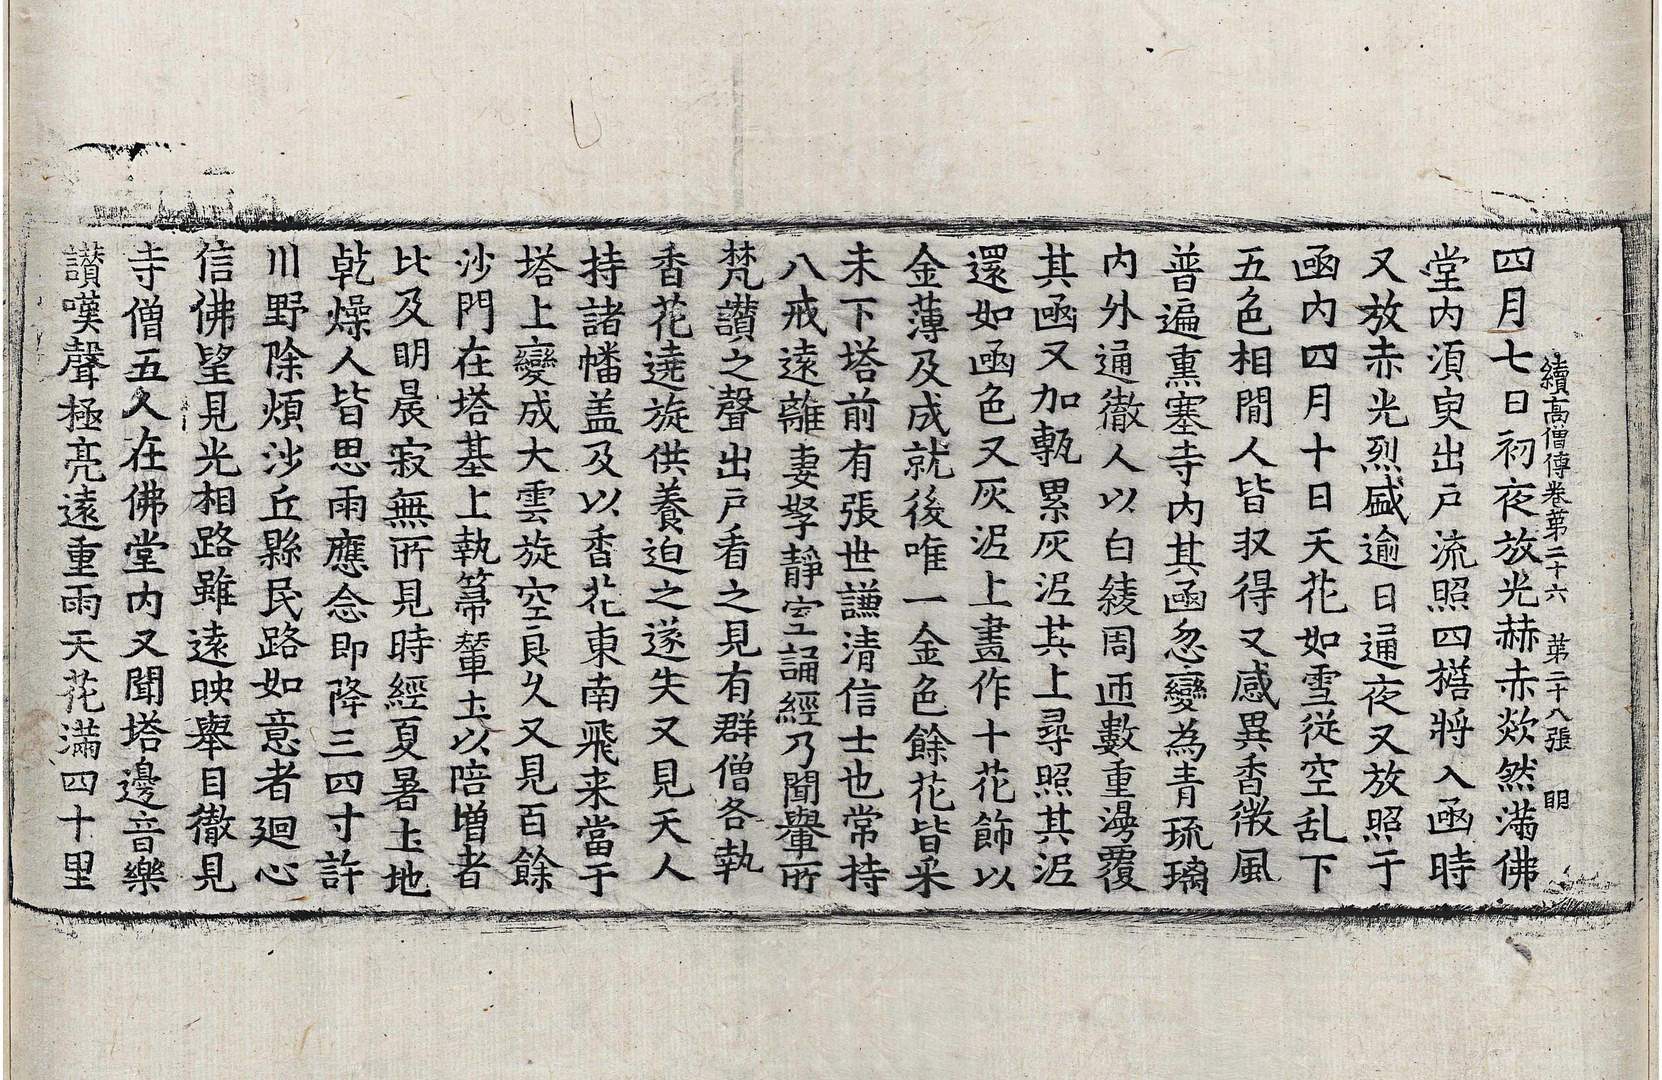 續高僧傳卷第二十六 第二十八張 明
四月七日初夜放光赫赤欻然滿佛
堂内湏臾出户流照四擔將入函時
又放赤光烈盛逾日通夜又放照于
函内四月十日天花如雪従空乱下
五色相閒人皆収得又感異香微風
普遍熏塞寺内其函忽變為青琉璃
内外通徹人以白綾周迊數重漫覆
其函又加甎累灰泥其上尋照其泥
還如函色又灰泥上畫作十花飾以
金薄及成就後唯一金色餘花皆采
未下塔前有張世謙清信士也常持
八戒遠離妻孥靜室誦經乃聞轝所
梵讃之聲出户看之見有群僧各執
香花遶旋供養迫之遂失又見天人
持諸幡盖及以香花東南飛来當于
塔上變成大雲旋空良久又見百餘
沙門在塔基上執箒輦土以陪增者
比及明晨寂無所見時經夏暑土地
乾燥人皆思雨應念即降三四寸許
川野除煩沙丘縣民路如意者迴心
信佛望見光相路雖遠映舉目徹見
寺僧五人在佛堂内又聞塔邊音樂
讃嘆聲極亮遠重雨天花滿四十里